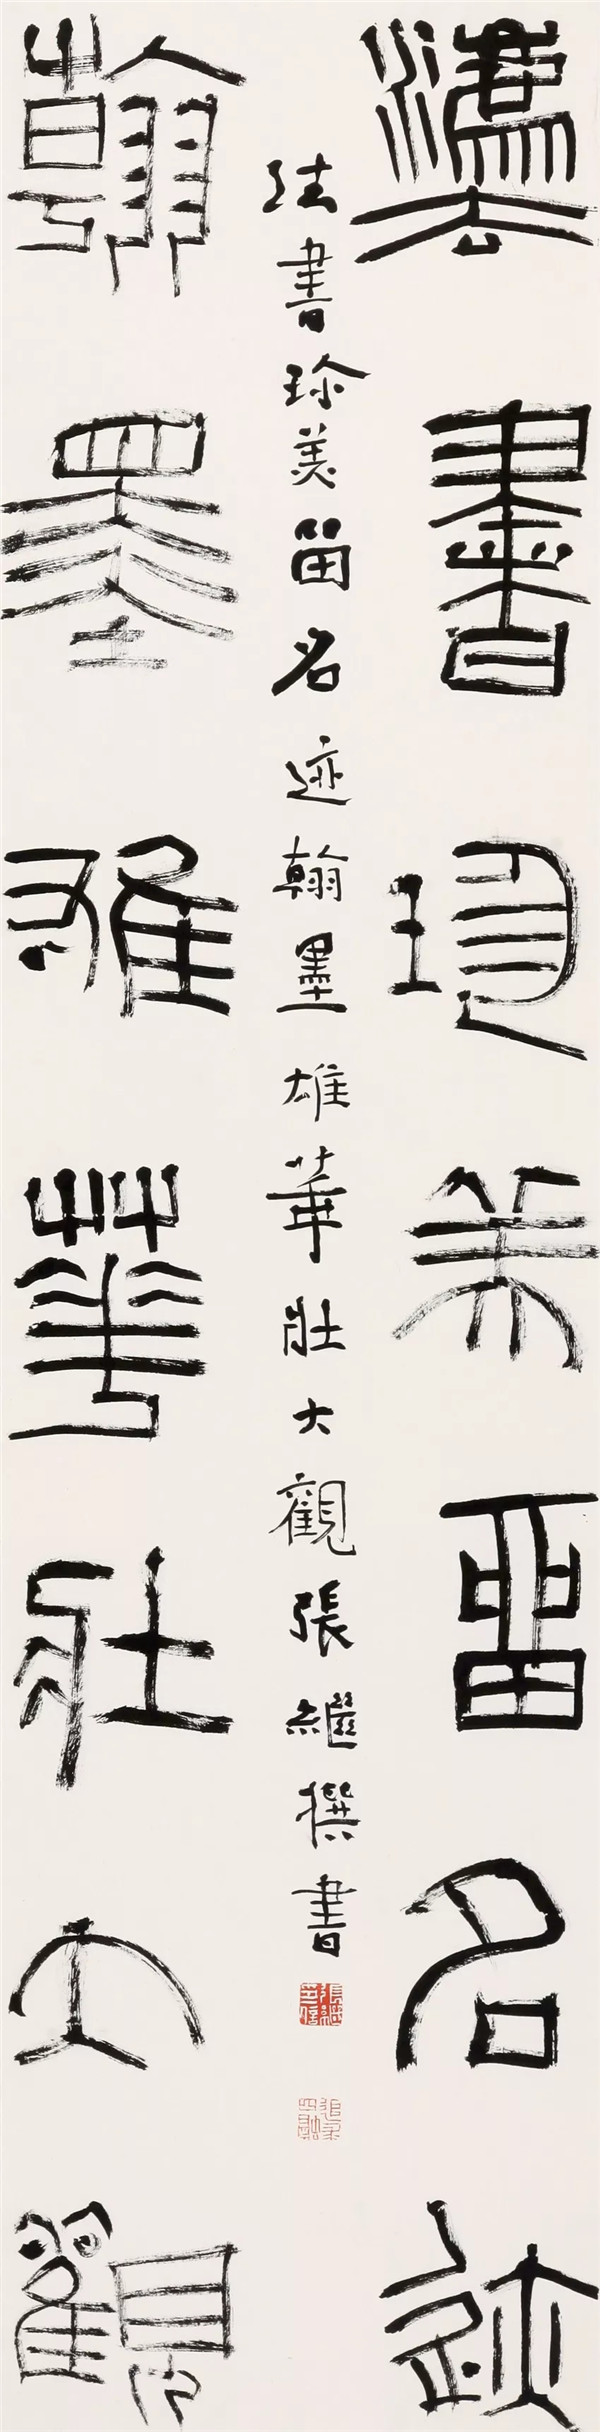 灋書珍美畱名迹
法書珍美留名迹翰墨雄華壯大觀張繼撰書
翰墨雄華壯大觀